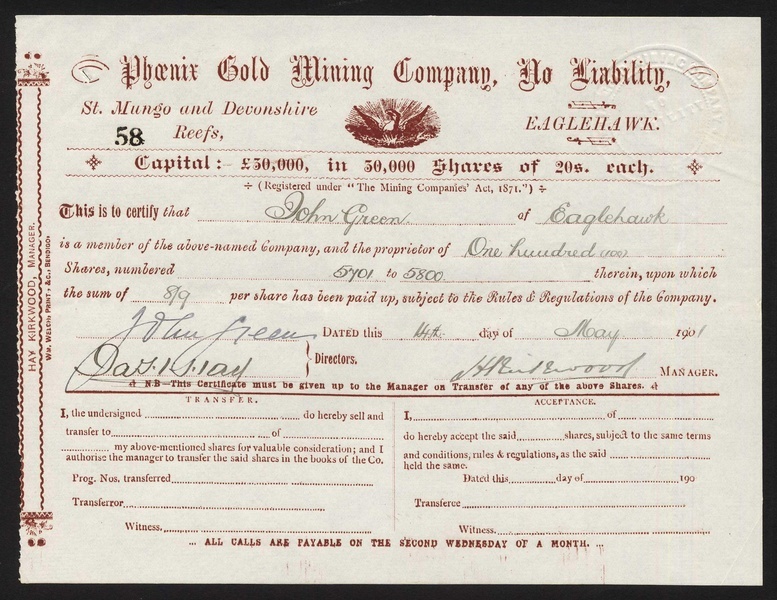 Phœnix Gold Mining Company, No Liability,
St. Mungo and Devonshire
Reefs,
58
EAGLEHAWK.
Capital:- £30,000, in 30,000 Shares of 20s. each.
÷ (Registered under "The Mining Companies' Act, 1871.") ÷
This is to certify that John Green of Eaglehawk
is a member of the above-named Company, and the proprietor of One hundred (100)
Shares, numbered 5701 to 5800 therein, upon which
the sum of 8/9 per share has been paid up, subject to the Rules & Regulations of the Company.
John Green DATED this 14th day of May 1901
Directors.
H Kirkwood MANAGER.
N.B—This Certificate must be given up to the Manager on Transfer of Any of the above Shares.
TRANSFER.
I, the undersigned do hereby sell and
transfer to of
my above-mentioned shares for valuable consideration; and I
authorise the manager to transfer the said shares in the books of the Co.
Prog. Nos. transferred
Transferror
Witness.
ACCEPTANCE.
I, of
do hereby accept the said shares, subject to the same terms
and conditions, rules & regulations, as the said
held the same.
Dated this day of 190
Transferee
Witness.
... ALL CALLS ARE PAYABLE ON THE SECOND WEDNESDAY OF A MONTH. ...
HAY KIRKWOOD, MANAGER.
WM. WELCH: PRINT; &C.; BENDIGO.